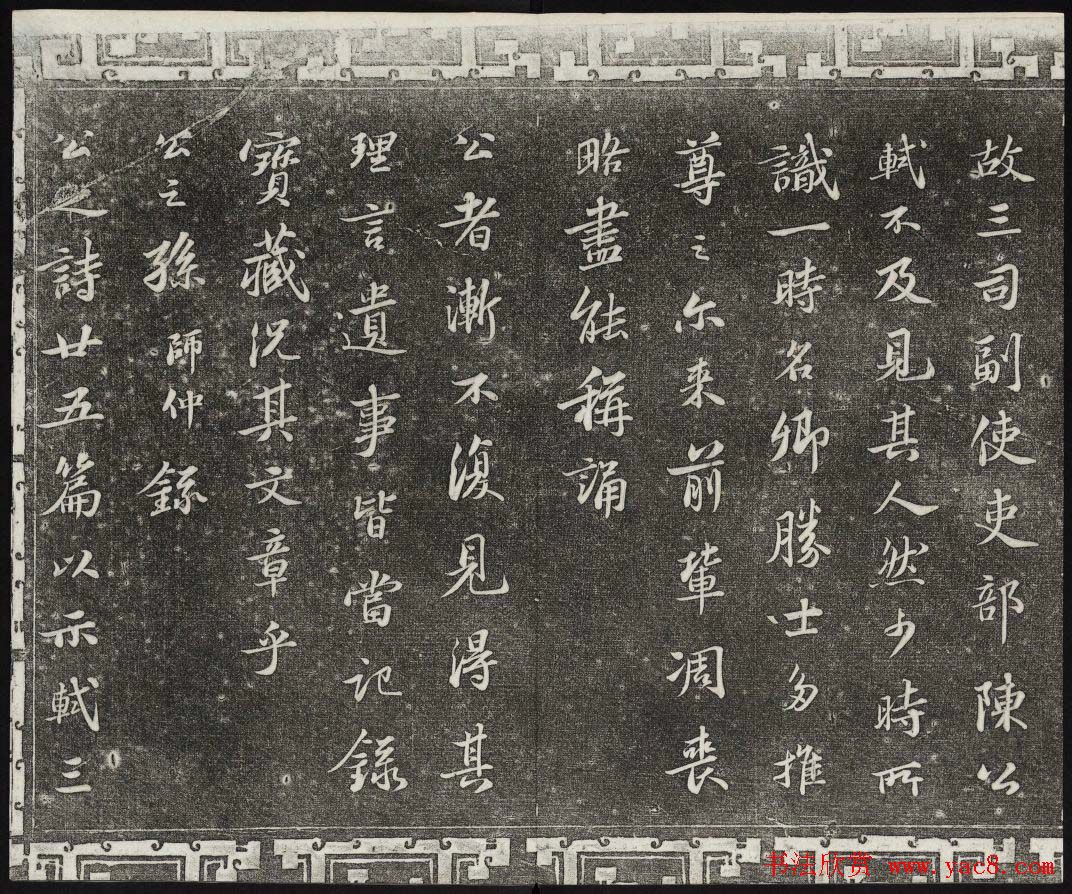 故三司副使吏部陳公
軾不及見其人然少時所
識一時名卿勝士多推
尊之尔来前輩凋喪
略盡能稱誦
公者漸不復見得其
理言遺事皆當記錄
寶藏況其文章乎
公之孫師仲錄
公之詩廿五篇以示軾三
书法欣赏 www.yac8.com